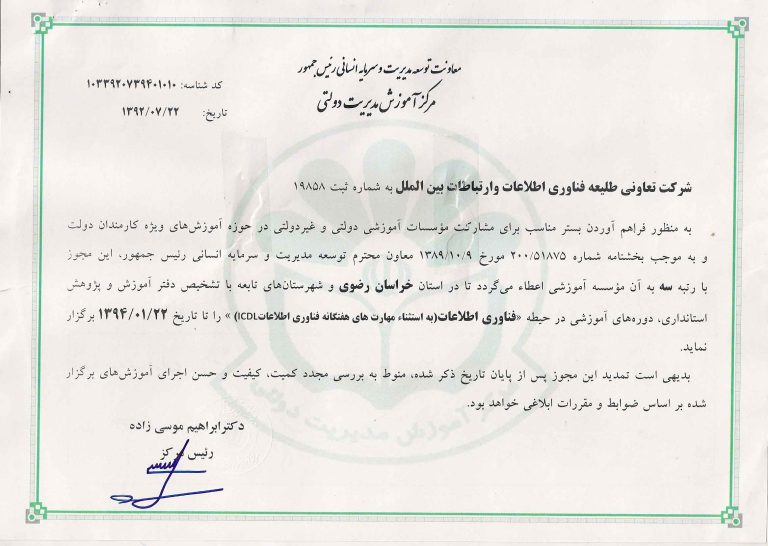 معاونت توسعه مدیریت و سرمایه انسانی رئیس جمهور
مرکز آموزش مدیریت دولتی
کد شناسه: ۱۰۳۳۹۲۰۷۳۹۴۰۱۰۱۰
تاریخ: ۱۳۹۲/۰۷/۲۲
شرکت تعاونی طلیعه فناوری اطلاعات وارتباطات بین الملل به شماره ثبت ۱۹۸۵۸
به منظور فراهم آوردن بستر مناسب برای مشارکت مؤسسات آموزشی دولتی و غیردولتی در حوزه آموزش‌های ویژه کارمندان دولت
و به موجب بخشنامه شماره ۲۰۰/۵۱۸۷۵ مورخ ۱۳۸۹/۱۰/۹ معاون محترم توسعه مدیریت و سرمایه انسانی رئیس جمهور، این مجوز
با رتبه سه به آن مؤسسه آموزشی اعطاء می‌گردد تا در استان خراسان رضوی و شهرستان‌های تابعه با تشخیص دفتر آموزش و پژوهش
استانداری، دوره‌های آموزشی در حیطه «فناوری اطلاعات(به استثناء مهارت های هفتگانه فناوری اطلاعاتICDL) » را تا تاریخ ۱۳۹۴/۰۱/۲۲ برگزار
نماید.
بدیهی است تمدید این مجوز پس از پایان تاریخ ذکر شده، منوط به بررسی مجدد کمیت، کیفیت و حسن اجرای آموزش‌های برگزار
شده بر اساس ضوابط و مقررات ابلاغی خواهد بود.
دکترابراهیم موسی زاده
رئیس مرکز
مرکز آموزش مدیریت دولتی